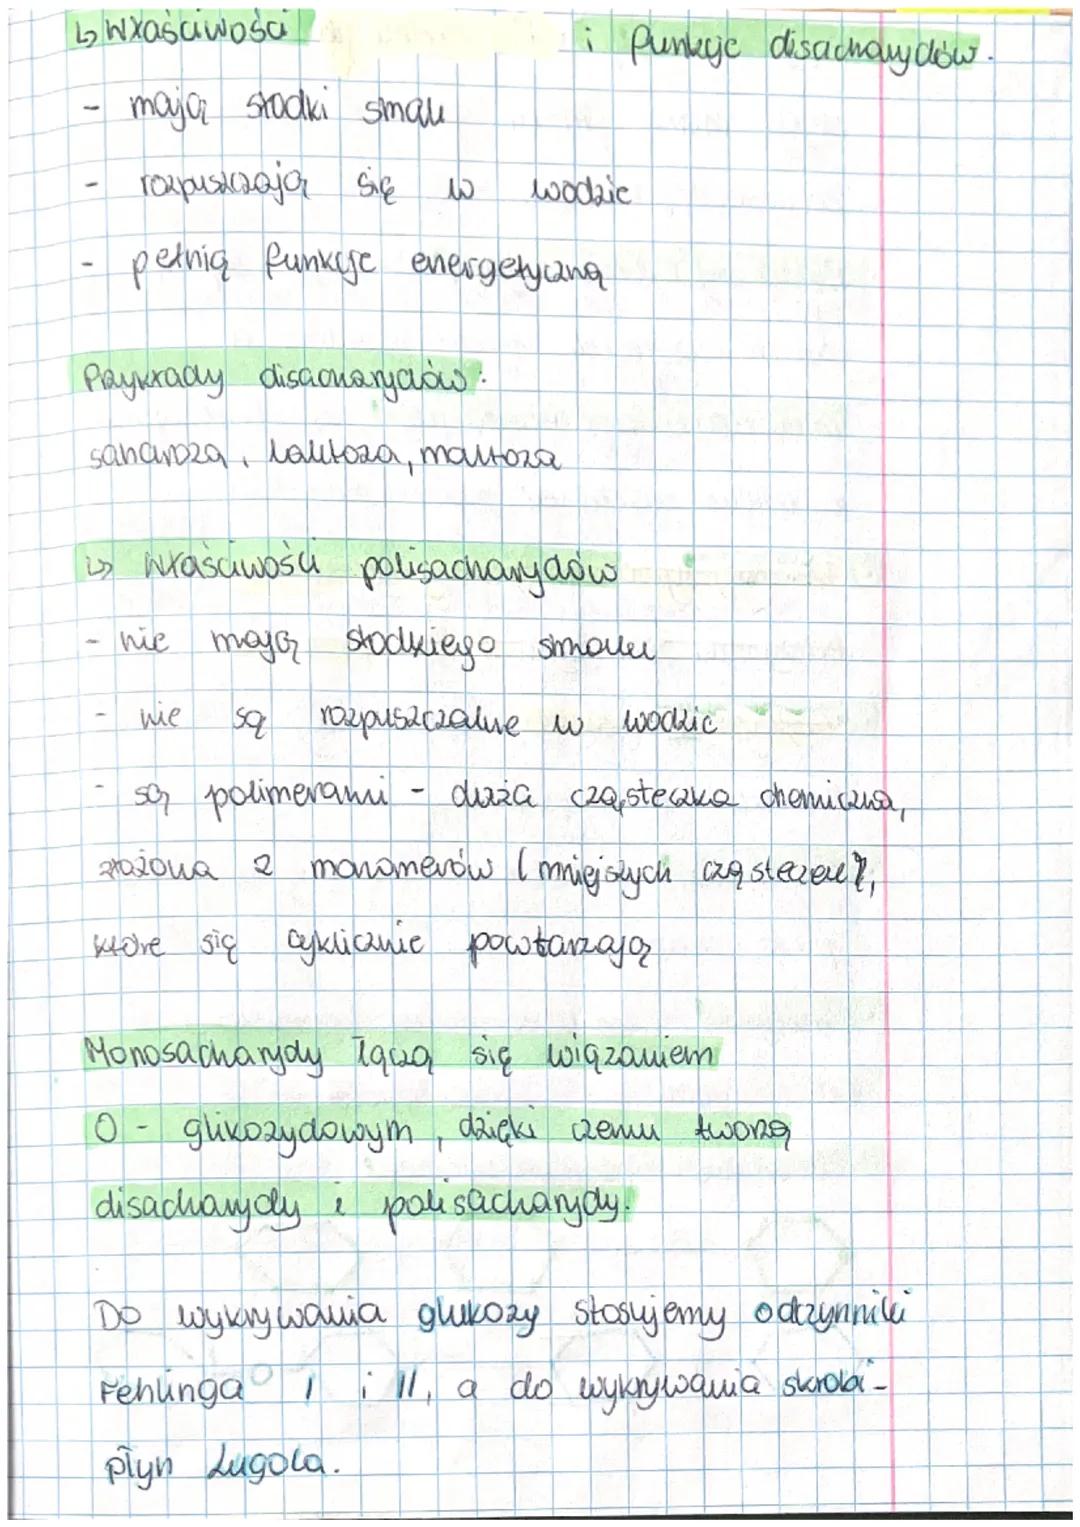 ↳ Właściwości i funkcje disacharydów.
- mają słodki smak
- rozpuszczają się w wodzie
- pełnią funkcje energetyczną
Przykłady disacharydów:
sacharoza, laktoza, maltoza
↳ Właściwości polisacharydów
- nie mają słodkiego smaku
- nie są rozpuszczalne w wodzie
- są polimerami - duża cząsteczka chemiczna,
złożona z monomerów (mniejszych cząsteczek),
które się cyklicznie powtarzają
Monosacharydy łączą się wiązaniem
O - glikozydowym, dzięki czemu tworzą
disacharydy i polisacharydy.
Do wykrywania glukozy stosujemy odczynniki
Fehlinga I i II, a do wykrywania skrobi -
płyn Lugola.